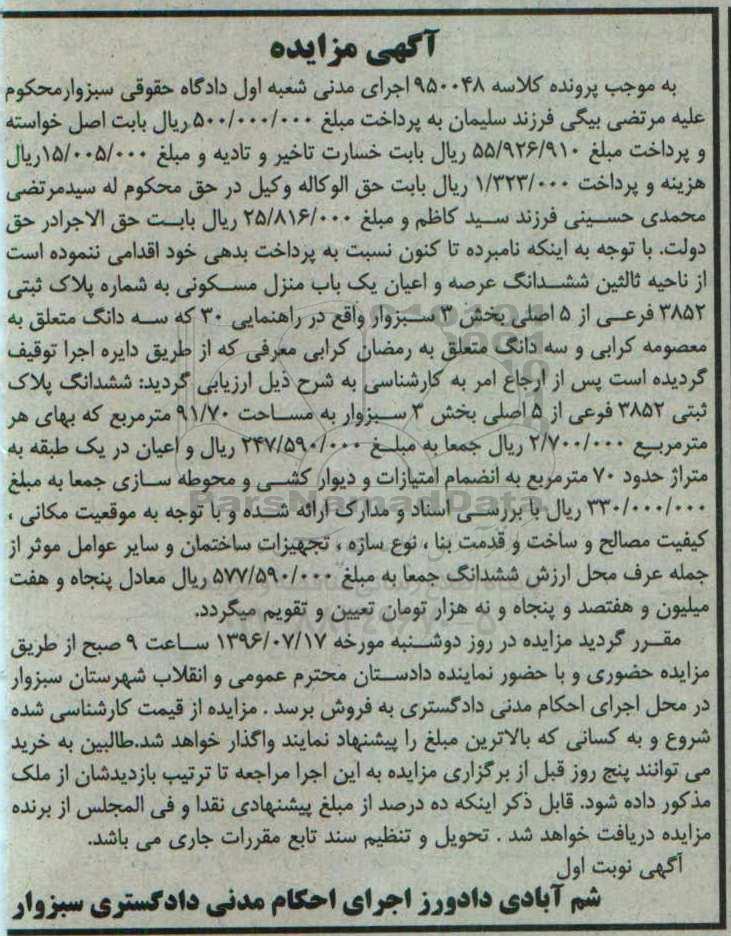 آگهی مزایده
به موجب پرونده کلاسه ۹۵۰۰۴۸ اجرای مدنی شعبه اول دادگاه حقوقی سبزوارمحکوم
علیه مرتضی بیگی فرزند سلیمان به پرداخت مبلغ ۵۰۰/۰۰۰/۰۰۰ ریال بابت اصل خواسته
و پرداخت مبلغ ۵۵/۹۲۶/۹۱۰ ریال بابت خسارت تاخیر و تادیه و مبلغ ۱۵/۰۰۵/۰۰۰ریال
هزینه و پرداخت ۱/۳۲۳/۰۰۰ ریال بابت حق الوکاله وکیل در حق محکوم له سیدمرتضی
محمدی حسینی فرزند سید کاظم و مبلغ ۲۵/۸۱۶/۰۰۰ ریال بابت حق الاجرادر حق
دولت. با توجه به اینکه نامبرده تا کنون نسبت به پرداخت بدهی خود اقدامی ننموده است
از ناحیه ثالثین ششدانگ عرصه و اعیان یک باب منزل مسکونی به شماره پلاک ثبتی
۳۸۵۲ فرعی از ۵ اصلی بخش ۳ سبزوار واقع در راهنمایی ۳۰ که سه دانگ متعلق به
معصومه کرابی و سه دانگ متعلق به رمضان کرابی معرفی که از طریق دایره اجرا توقیف
گردیده است پس از ارجاع امر به کارشناسی به شرح ذیل ارزیابی گردید: ششدانگ پلاک
ثبتی ۳۸۵۲ فوعی از ۵ اصلی بخش ۳ سبزوار به مساحت ۹۱/۷۰ مترمربع که بهای هر
مترمربع ۲/۷۰۰/۰۰۰ ریال جمعا به مبلغ ۲۴۷/۵۹۰/۰۰۰ ریال و اعیان در یک طبقه به
متراژ حدود ۷۰ مترمربع به انضمام امتیازات و دیوار کشی و محوطه سازی جمعا به مبلغ
۳۳۰/۰۰۰/۰۰۰ ریال با بررسی اسناد و مدارک ارائه شده و با توجه به موقعیت مکانی ،
کیفیت مصالح و ساخت و قدمت بنا ، نوع سازه ، تجهیزات ساختمان و سایر عوامل موثر از
جمله عرف محل ارزش ششدانگ جمعا به مبلغ ۵۷۷/۵۹۰/۰۰۰ ریال معادل پنجاه و هفت
میلیون و هفتصد و پنجاه و نه هزار تومان تعیین و تقویم میگردد.
مقرر گردید مزایده در روز دوشنبه مورخه ۱۳۹۶/۰۷/۱۷ ساعت ۹ صبح از طریق
مزایده حضوری و با حضور نماینده دادستان محترم عمومی و انقلاب شهرستان سبزوار
در محل اجرای احکام مدنی دادگستری به فروش برسد . مزایده از قیمت کارشناسی شده
شروع و به کسانی که بالاترین مبلغ را پیشنهاد نمایند واگذار خواهد شد.طالبین به خرید
می توانند پنج روز قبل از برگزاری مزایده به این اجرا مراجعه تا ترتیب بازدیدشان از ملک
مذکور داده شود. قابل ذکر اینکه ده درصد از مبلغ پیشنهادی نقدا و فی المجلس از برنده
مزایده دریافت خواهد شد . تحویل و تنظیم سند تابع مقررات جاری می باشد.
آگهی نوبت اول
شم آبادی دادورز اجرای احکام مدنی دادگستری سبزوار
ParsNamadData